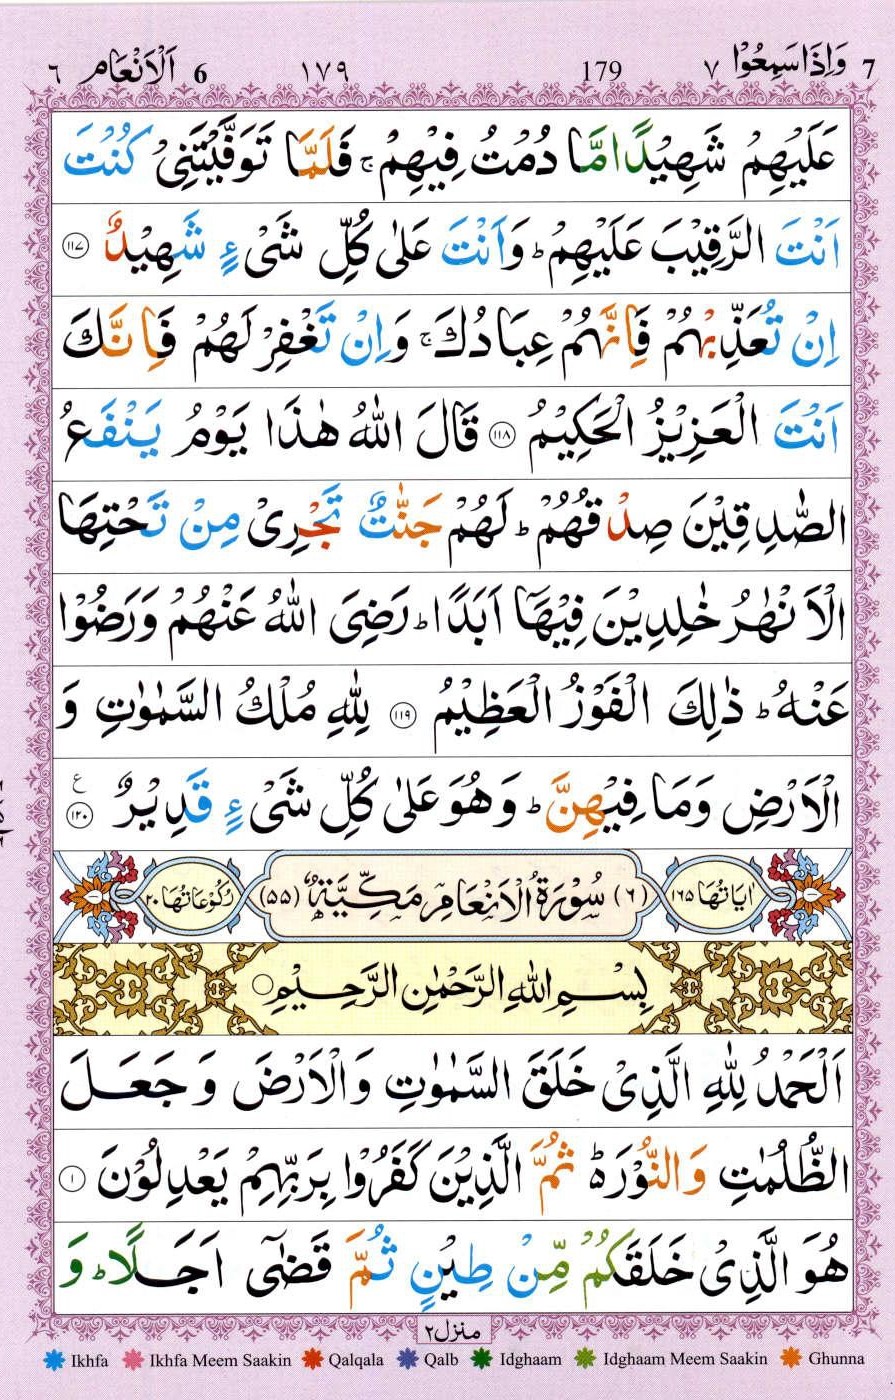 وَاِذَا سَمِعُوْا ٧ 7 179 ١٧٩ 6 اَلْاَنْعَام ٦
عَلَيْهِمْ شَهِيْدًا مَّا دُمْتُ فِيْهِمْ ۚ فَلَمَّا تَوَفَّيْتَنِيْ كُنْتَ
اَنْتَ الرَّقِيْبَ عَلَيْهِمْ ؕ وَاَنْتَ عَلٰى كُلِّ شَيْءٍ شَهِيْدٌ ١١٧
اِنْ تُعَذِّبْهُمْ فَاِنَّهُمْ عِبَادُكَ ۚ وَاِنْ تَغْفِرْ لَهُمْ فَاِنَّكَ
اَنْتَ الْعَزِيْزُ الْحَكِيْمُ ١١٨ قَالَ اللّٰهُ هٰذَا يَوْمُ يَنْفَعُ
الصّٰدِقِيْنَ صِدْقُهُمْ ؕ لَهُمْ جَنّٰتٌ تَجْرِيْ مِنْ تَحْتِهَا
الْاَنْهٰرُ خٰلِدِيْنَ فِيْهَاۤ اَبَدًا ؕ رَضِيَ اللّٰهُ عَنْهُمْ وَرَضُوْا
عَنْهُ ؕ ذٰلِكَ الْفَوْزُ الْعَظِيْمُ ١١٩ لِلّٰهِ مُلْكُ السَّمٰوٰتِ وَ
الْاَرْضِ وَمَا فِيْهِنَّ ؕ وَهُوَ عَلٰى كُلِّ شَيْءٍ قَدِيْرٌ ١٢٠ ع
اٰيَاتُهَا ١٦٥ (٦) سُوْرَةُ الْاَنْعَامِ مَكِّيَّةٌ (٥٥) رُكُوْعَاتُهَا ٢٠
بِسْمِ اللّٰهِ الرَّحْمٰنِ الرَّحِيْمِ
اَلْحَمْدُ لِلّٰهِ الَّذِيْ خَلَقَ السَّمٰوٰتِ وَالْاَرْضَ وَجَعَلَ
الظُّلُمٰتِ وَالنُّوْرَ ۬ؕ ثُمَّ الَّذِيْنَ كَفَرُوْا بِرَبِّهِمْ يَعْدِلُوْنَ ١
هُوَ الَّذِيْ خَلَقَكُمْ مِّنْ طِيْنٍ ثُمَّ قَضٰۤى اَجَلًا ؕ وَ
منزل ٢
Ikhfa Ikhfa Meem Saakin Qalqala Qalb Idghaam Idghaam Meem Saakin Ghunna